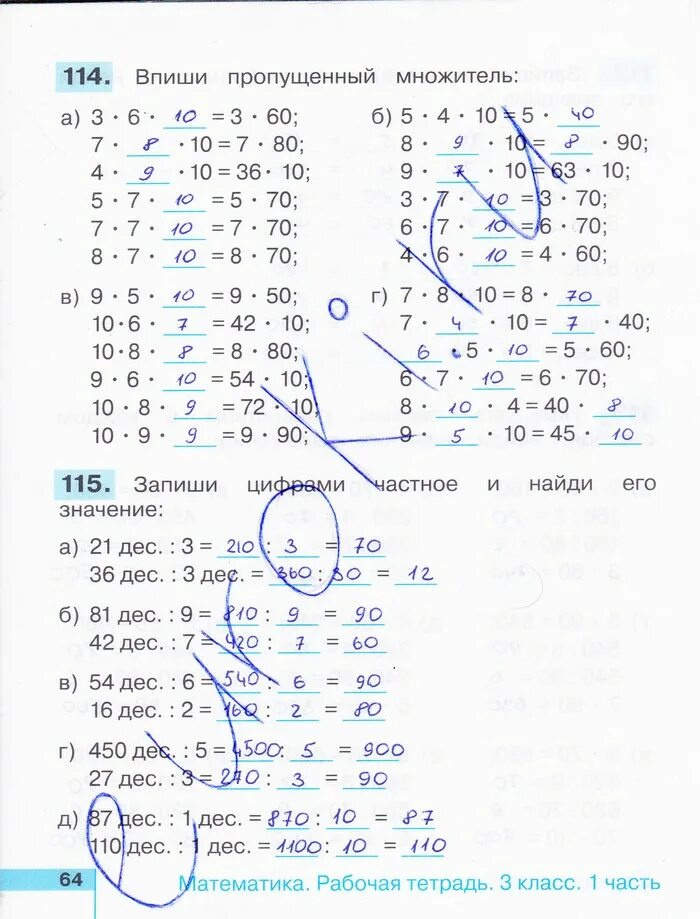 114. Впиши пропущенный множитель:
а) 3 · 6 · 10 = 3 · 60;
7 · 8 · 10 = 7 · 80;
4 · 9 · 10 = 36 · 10;
5 · 7 · 10 = 5 · 70;
7 · 7 · 10 = 7 · 70;
8 · 7 · 10 = 8 · 70;
б) 5 · 4 · 10 = 5 · 40
8 · 9 · 10 = 8 · 90;
9 · 7 · 10 = 63 · 10;
3 · 7 · 10 = 3 · 70;
6 · 7 · 10 = 6 · 70;
4 · 6 · 10 = 4 · 60;
в) 9 · 5 · 10 = 9 · 50;
10 · 6 · 7 = 42 · 10;
10 · 8 · 8 = 8 · 80;
9 · 6 · 10 = 54 · 10;
10 · 8 · 9 = 72 · 10;
10 · 9 · 9 = 9 · 90;
г) 7 · 8 · 10 = 8 · 70
7 · 4 · 10 = 7 · 40;
6 · 5 · 10 = 5 · 60;
6 · 7 · 10 = 6 · 70;
8 · 10 · 4 = 40 · 8
9 · 5 · 10 = 45 · 10
115. Запиши цифрами частное и найди его
значение:
а) 21 дес. : 3 = 210 : 3 = 70
36 дес. : 3 дес. = 360 : 30 = 12
б) 81 дес. : 9 = 810 : 9 = 90
42 дес. : 7 = 420 : 7 = 60
в) 54 дес. : 6 = 540 : 6 = 90
16 дес. : 2 = 160 : 2 = 80
г) 450 дес. : 5 = 4500 : 5 = 900
27 дес. : 3 = 270 : 3 = 90
д) 87 дес. : 1 дес. = 870 : 10 = 87
110 дес. : 1 дес. = 1100 : 10 = 110
64
Математика. Рабочая тетрадь. 3 класс. 1 часть